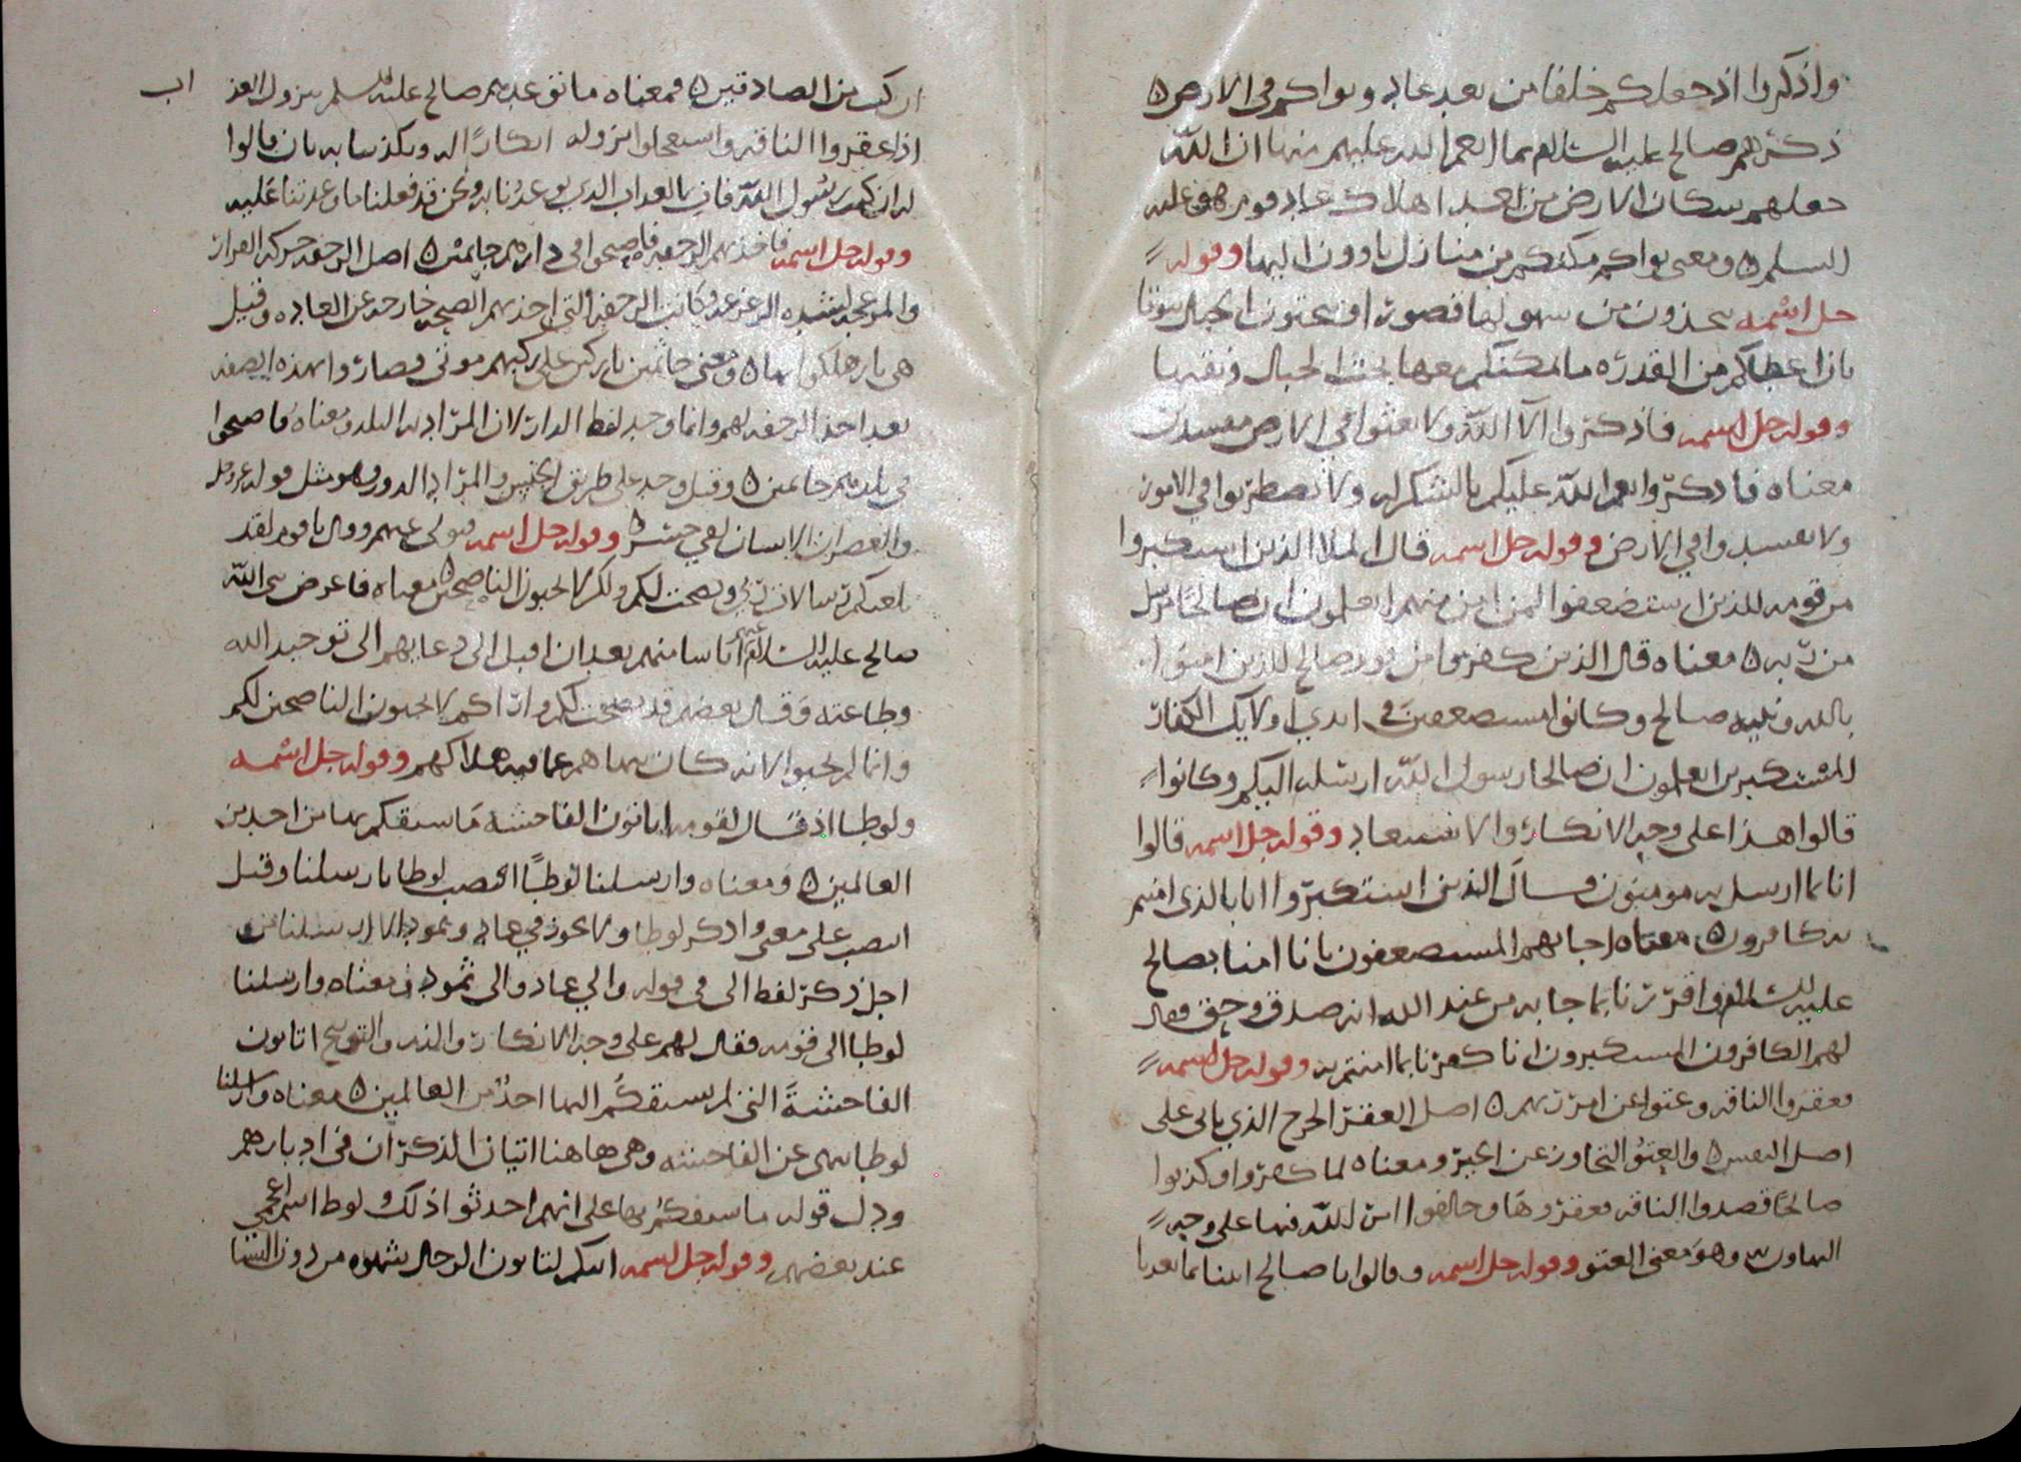 واذكروا اذ جعلكم خلفا من بعد عاد وبواكم في الارض ه
ذكرهم صالح عليه السلام بما انعم الله عليهم منها ان الله
جعلهم سكان الارض من بعد اهلاك عاد قوم هود عليه
السلم ه ومعنى بواكم مكنكم من منازل ياوون اليها وقوله
جل اسمه تتخذون من سهولها قصورا وتنحتون الجبال بيوتا
بان اعطاكم من القدره ما امكنكم معها نحت الجبال ونقبها
وقوله جل اسمه فاذكروا آلا الله ولا تعثوا في الارض مفسدين
معناه فاذكروا نعم الله عليكم بالشكر له ولا تضطربوا في الامور
ولا تفسدوا في الارض وقوله جل اسمه قال الملا الذين استكبروا
من قومه للذين استضعفوا لمن امن منهم اتعلمون ان صالحا مرسل
من ربه ه معناه قال الذين كفروا من قوم صالح للذين امنوا
بالله ونبيه صالح وكانوا مستضعفين في ايدي اوليك الكفار
المستكبرين اتعلمون ان صالحا رسول الله ارسله اليكم وكانوا
قالوا هذا على وجه الانكار والاستبعاد وقوله جل اسمه قالوا
انا بما ارسل به مومنون قال الذين استكبروا انا بالذي امنتم
به كافرون ه معناه اجابهم المستضعفون بانا امنا بصالح
عليه السلام واقررنا بما جا به من عند الله انه صدق وحق فقال
لهم الكافرون المستكبرون انا كفرنا بما امنتم به وقوله جل اسمه
فعقروا الناقه وعتوا عن امر ربهم ه اصل العقر الجرح الذي ياتي على
اصل النفس ه والعتو التجاوز عن الحد ومعناه لما كفروا وكذبوا
صالحا قصدوا الناقه فعقروها وخالفوا امر الله فيها على وجه
التهاون به وهو معنى العتو وقوله جل اسمه وقالوا يا صالح ايتنا بما تعدنا
ان كنت من الصادقين ه فمعناه ما توعدهم صالح عليه السلم بنزول العذ اب
اذا عقروا الناقه واستعجلوا نزوله انكارا له وتكذيبا به بان قالوا
له ان كنت رسول الله فات بالعذاب الذي توعدنا به ونحن قد فعلنا ما وعدتنا عليه
وقوله جل اسمه فاخذتهم الرجفه فاصبحوا في دارهم جاثمين ه اصل الرجفه حركه القرار
والمزعجه لشده الزعزعه وكانت الرجفه التي اخذتهم الصيحه خارجه عن العاده وقيل
هي نار هلكوا بها ه ومعنى جاثمين باركين على ركبهم موتى وصاروا بهذه الصفه
بعد اخذ الرجفه لهم وانما وحد لفظ الدار لان المراد به البلد ومعناه فاصبحوا
في بلدهم جاثمين ه وقيل وحد على طريق الجنس والمراد الدور وهو مثل قوله عز وجل
والعصر ان الانسان لفي خسر ه وقوله جل اسمه فتولى عنهم وقال يا قوم لقد
بلغتكم رسالات ربي ونصحت لكم ولكن لا تحبون الناصحين ه معناه فاعرض نبي الله
صالح عليه السلام عنهم اياسا منهم بعد ان اقبل الى دعايهم الى توحيد الله
وطاعته وقال بعضهم قد نصحت لكم واراكم لا تحبون الناصحين لكم
وانما لم يحبوا لانه كان ينهاهم عما فيه هلاكهم وقوله جل اسمه
ولوطا اذ قال لقومه اتاتون الفاحشه ما سبقكم بها من احد من
العالمين ه ومعناه وارسلنا لوطا انتصب لوطا بارسلنا وقيل
انتصب على معنى واذكر لوطا ولا يجوز في عاد وثمود الا ارسلنا من
اجل ذكر لفظ الى في قوله والي عاد والى ثمود ومعناه وارسلنا
لوطا الى قومه فقال لهم على وجه الانكار والذم والتوبيخ اتاتون
الفاحشة التي لم يسبقكم اليها احد من العالمين ه معناه وارسلنا
لوطا ينهى عن الفاحشه وهي هاهنا اتيان الذكران في ادبارهم
ودل قوله ما سبقكم بها على انهم احدثوا ذلك لوط اسم اعجمي
عند بعضهم وقوله جل اسمه انكم لتاتون الرجال شهوه من دون النسا